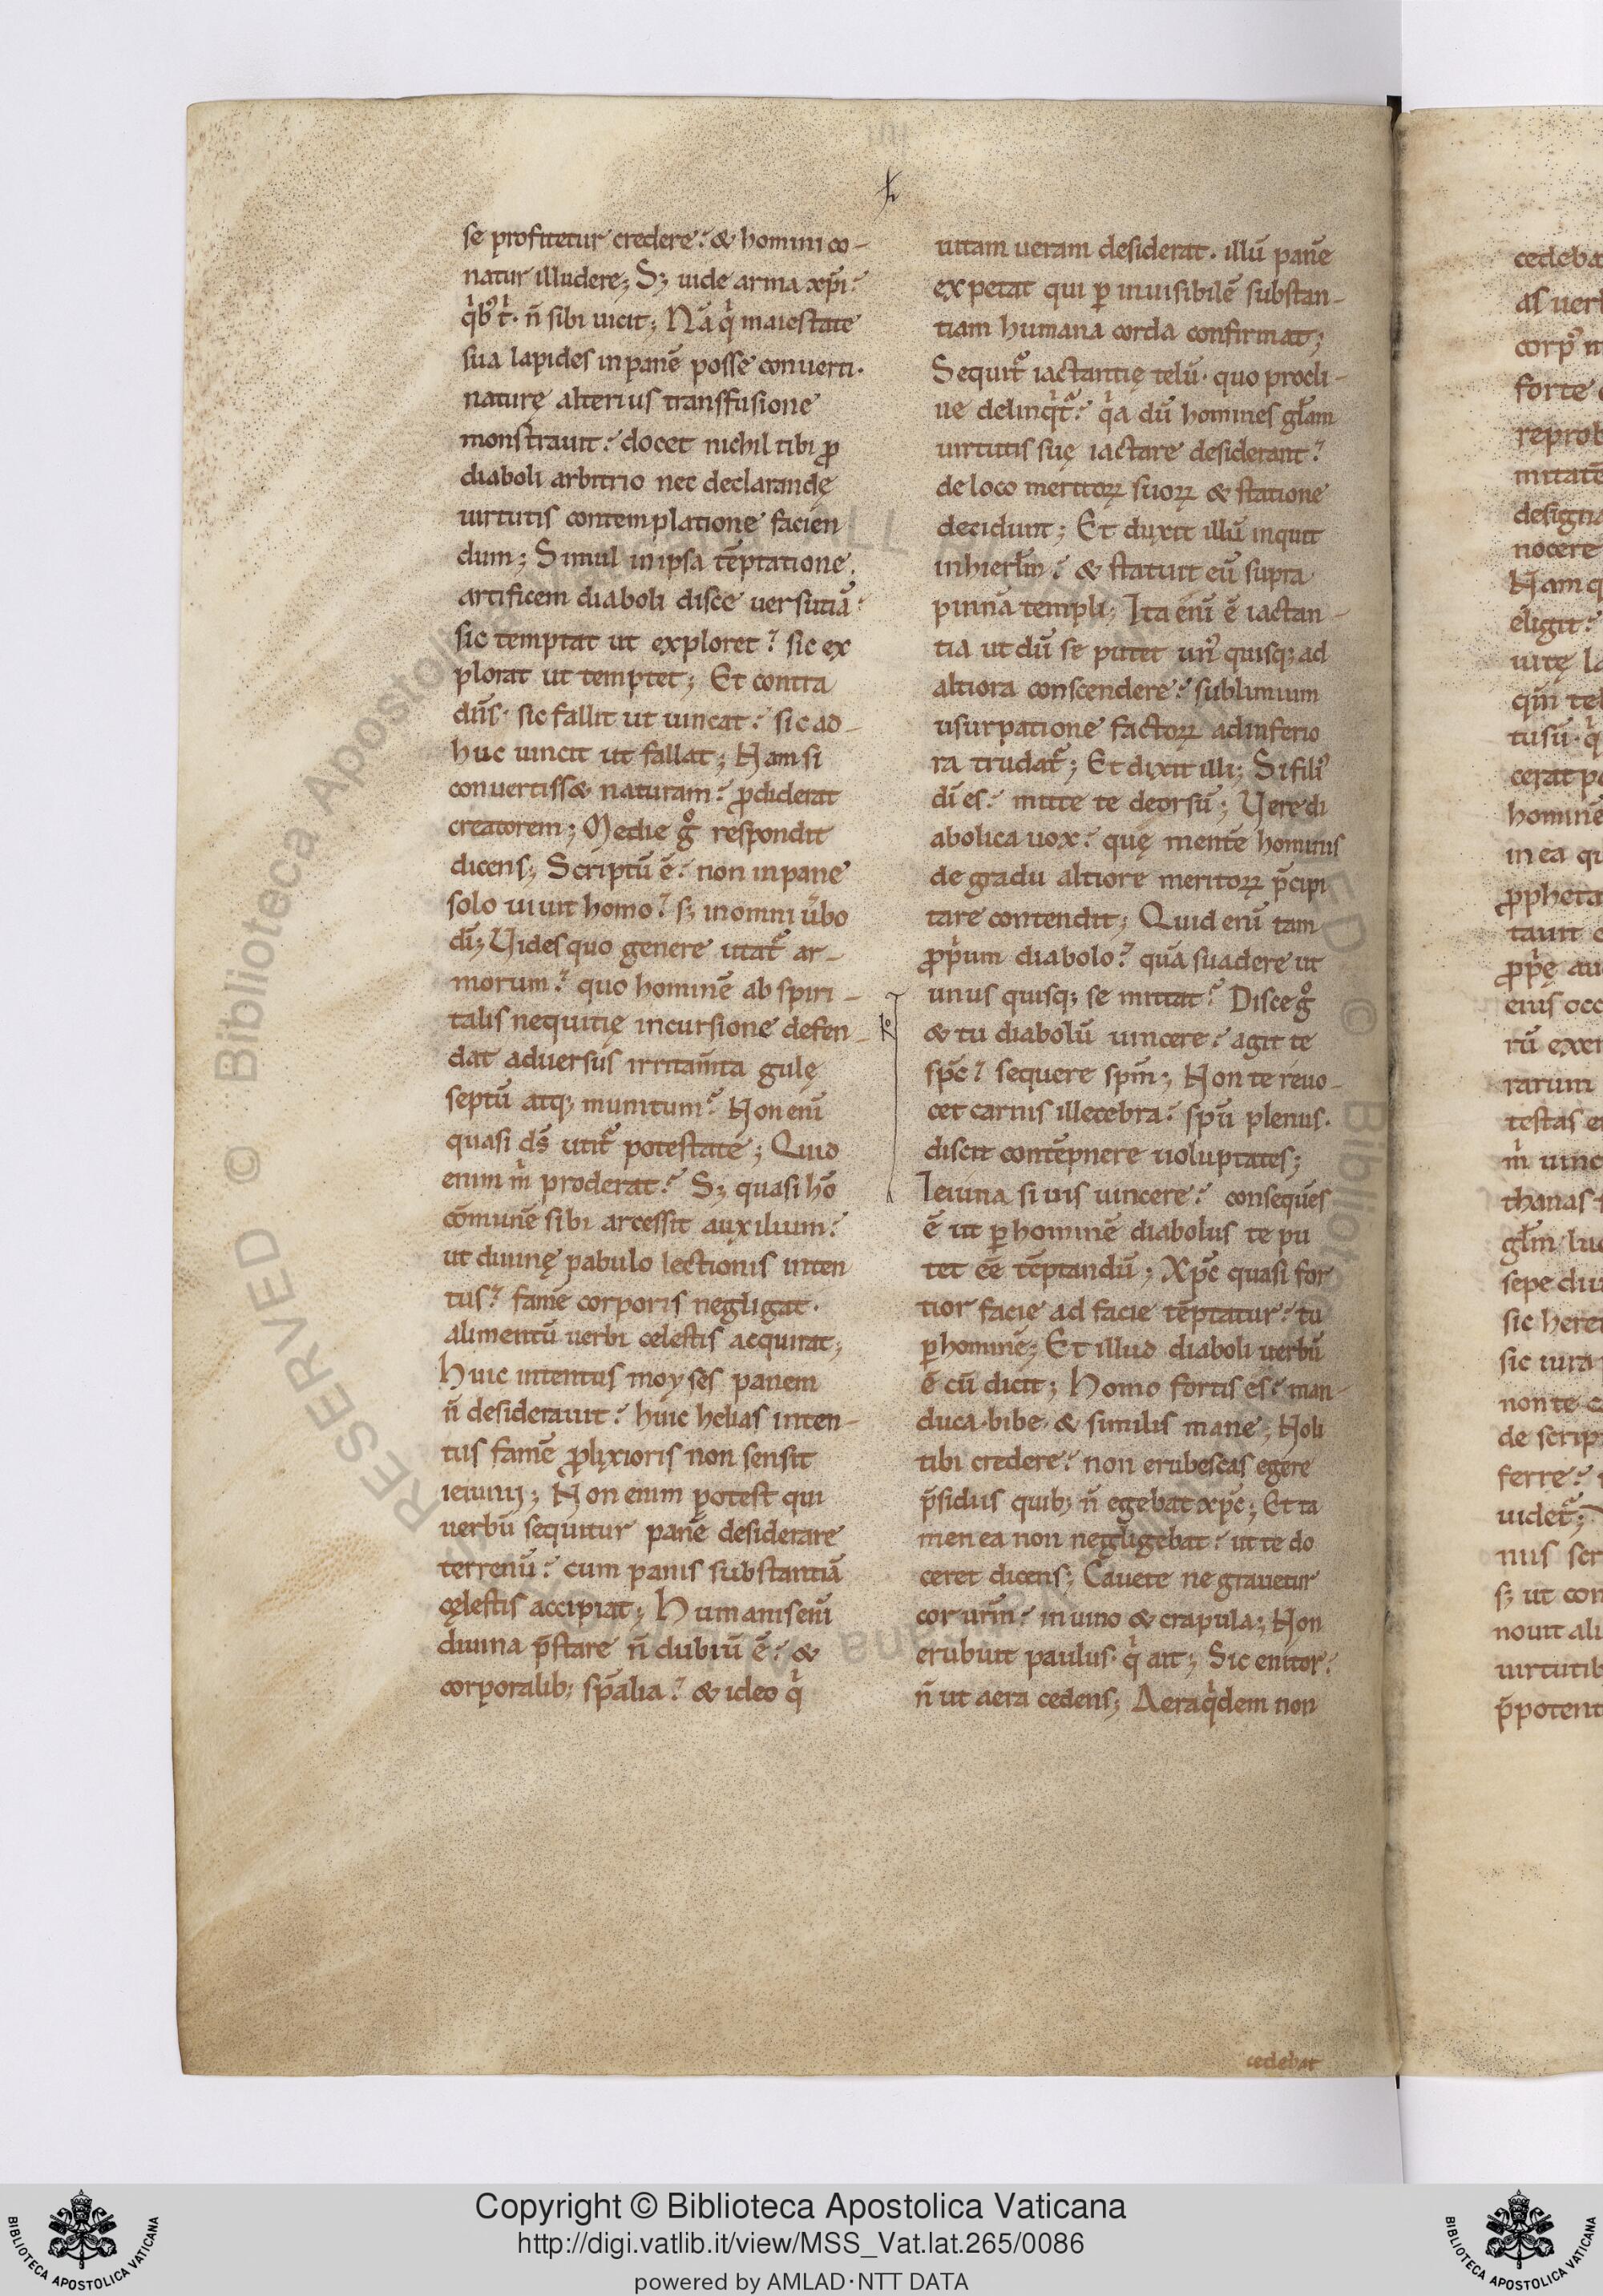 se profitetur credere? & homini co-
natur illudere; Sꝫ uide arma xp̄i?
qͥbꝰ tͥ· n̄ sibi uicit; Nā qͥ maiestate
sua lapides in panē posse conuerti·
naturę alterius transfusione
monstrauit? docet nichil tibi ꝓ
diaboli arbitrio nec declarandę
uirtutis contemplatione facien
dum; Simul in ipsa tēptatione
artificem diaboli disce uersutiā?
sic temptat ut exploret? sic ex
plorat ut temptet; Et contra
dn̄s· sic fallit ut uincat? sic ad-
huc uincit ut fallat; Nam si
conuertiss& naturam? ꝓdiderat
creatorem; Medie gͦ respondit
dicens; Scriptū ē? non in pane
solo uiuit homo? sꝫ in omni ūbo
dī; Uides quo genere utat᷑ ar-
morum? quo hominē ab spiri-
talis nequitię incursione defen-
dat aduersus irritam̄ta gulę
septū atqꝫ munitum? Non enī
quasi ds̄ utit᷑ potestate; Quid
enim mͥ proderat? Sꝫ quasi hō
cōmunē sibi arcessit auxilium?
ut diuinę pabulo lectionis inten
tus? famē corporis negligat·
alimentū uerbi celestis acquirat;
Huic intentus moyses panem
n̄ desiderauit? huic helias inten-
tus famē ꝓlixioris non sensit
ieiunij; Non enim potest qui
uerbū sequitur panē desiderare
terrenū? cum panis substantiā
cęlestis accipiat; Humanis enī
diuina p̄stare n̄ dubiū ē? &
corporalibꝫ sp̄alia? & ideo qͥ
uitam ueram desiderat· illū panē
expetat qui ꝑ inuisibilē substan-
tiam humana corda confirmat;
Sequit᷑ iactantię telū· quo procli-
ue delinqͥt᷑? qͥa dū homines gl̄am
uirtutis suę iactare desiderant?
de loco meritoꝝ suoꝝ & statione
decidunt; Et duxit illū inquit
in hierl̄m? & statuit eū supra
pinnā templi; Ita enī ē iactan-
tia ut dū se putet unꝰ quisqꝫ ad
altiora conscendere? sublimium
usurpatione factoꝝ ad inferio
ra trudat᷑; Et dixit illi; Si filiꝰ
dī es? mitte te deorsū; Uere di
abolica uox? quę mentē hominis
de gradu altiore meritoꝝ p̄cipi
tare contendit; Quid enī tam
ꝓpͥum diabolo? quā suadere ut
unus quisqꝫ se mittat? Disce gͦ
& tu diabolū uincere? agit te
sp̄c? sequere sp̄m; Non te reuo-
cet carnis illecebra? sp̄u plenus·
discit contēpnere uoluptates;
Ieiuna si uis uincere? consequēs
ē ut ꝑ hominē diabolus te pu
tet eē tēptandū; Xp̄c quasi for
tior facie ad facie tēptatur? tu
ꝑ hominē; Et illud diaboli uerbū
ē cū dicit; Homo fortis es? man-
duca· bibe· & similis mane; Noli
tibi credere? non erubescas egere
p̄sidiis quibꝫ n̄ egebat xp̄c; Et ta
men ea non negligebat? ut te do
ceret dicens; Cauete ne grauetur
cor ur̄m? in uino & crapula; Non
erubuit paulus· qͥ ait; Sic enitor?
n̄ ut aera cedens; Aera qͥdem non
cedebat
Copyright © Biblioteca Apostolica Vaticana
http://digi.vatlib.it/view/MSS_Vat.lat.265/0086
powered by AMLAD·NTT DATA